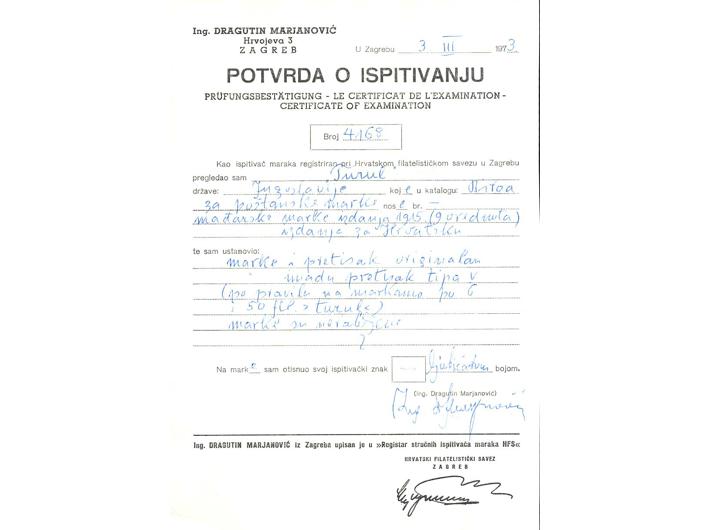 Ing. DRAGUTIN MARJANOVIĆ
Hrvojeva 3
ZAGREB
U Zagrebu 3 III 1973
POTVRDA O ISPITIVANJU
PRÜFUNGSBESTÄTIGUNG - LE CERTIFICAT DE L'EXAMINATION -
CERTIFICATE OF EXAMINATION
Broj 4168
Kao ispitivač maraka registriran pri Hrvatskom filatelističkom savezu u Zagrebu
pregledao sam "Turul"
države: Jugoslavije koje u katalogu:
za poštanske marke nose br. —
mađarske marke izdanja 1915 (9 vrednota)
izdanja za Hrvatsku
te sam ustanovio:
marke i pretisak originalan
imadu pretisak tipa V
(po pravilu na markama po 6
i 50 fil. "turul")
marke su nerabljene
Na marke sam otisnuo svoj ispitivački znak bojom.
(Ing. Dragutin Marjanović)
Ing. DRAGUTIN MARJANOVIĆ iz Zagreba upisan je u »Registar stručnih ispitivača maraka HFS«
HRVATSKI FILATELISTIČKI SAVEZ
ZAGREB